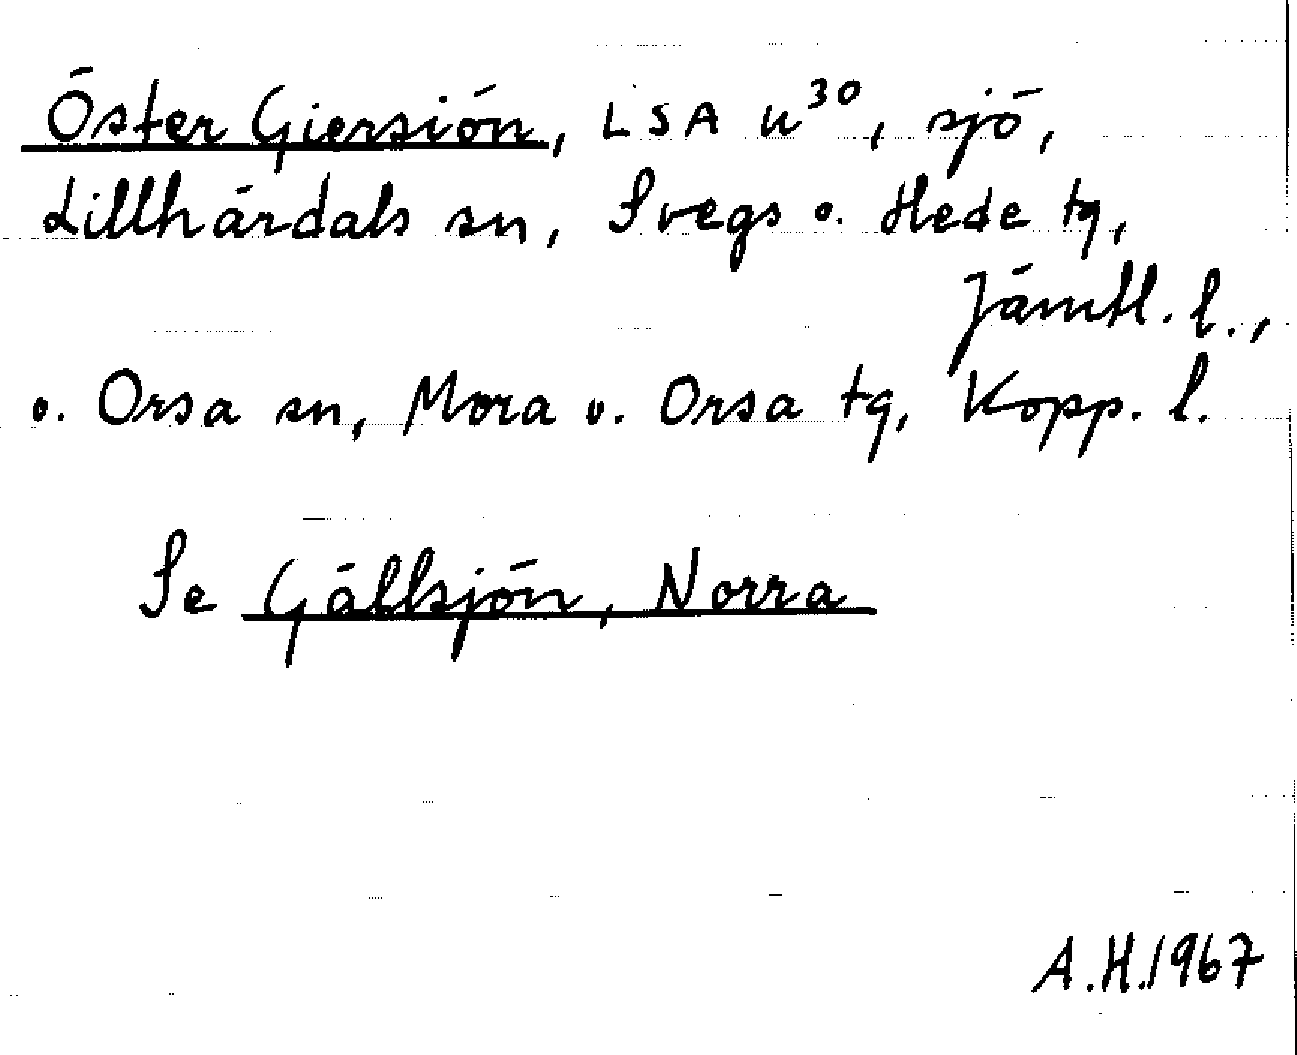 Öster Giersiön, LSA u30, sjö,
Lillhärdals sn, Svegs o. Hede tg,
Jämtl. l.,
o. Orsa sn, Mora o. Orsa tg, Kopp. l.
Se Gällsjön, Norra
A.H.1967